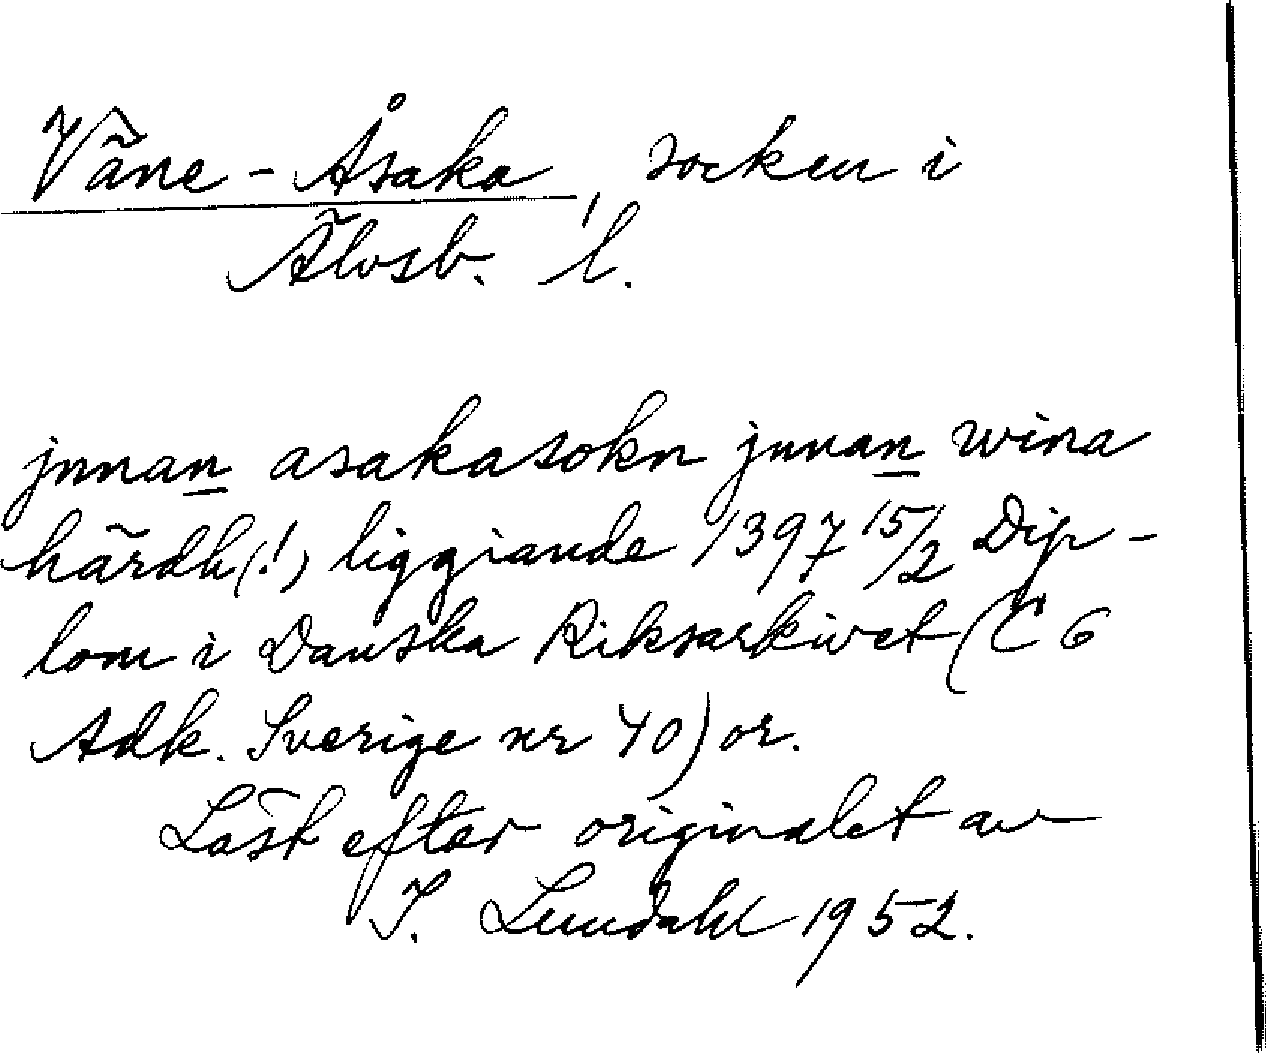 Väne-Åsaka, socken i
Älvsb. l.
jnnan asakasokn jnnan wina
härdh(!) liggiande 1397 15/2 Dip-
lom i Danska Riksarkivet (C 6
Adk. Sverige nr 40) or.
Läst efter originalet av
I. Lundahl 1952.